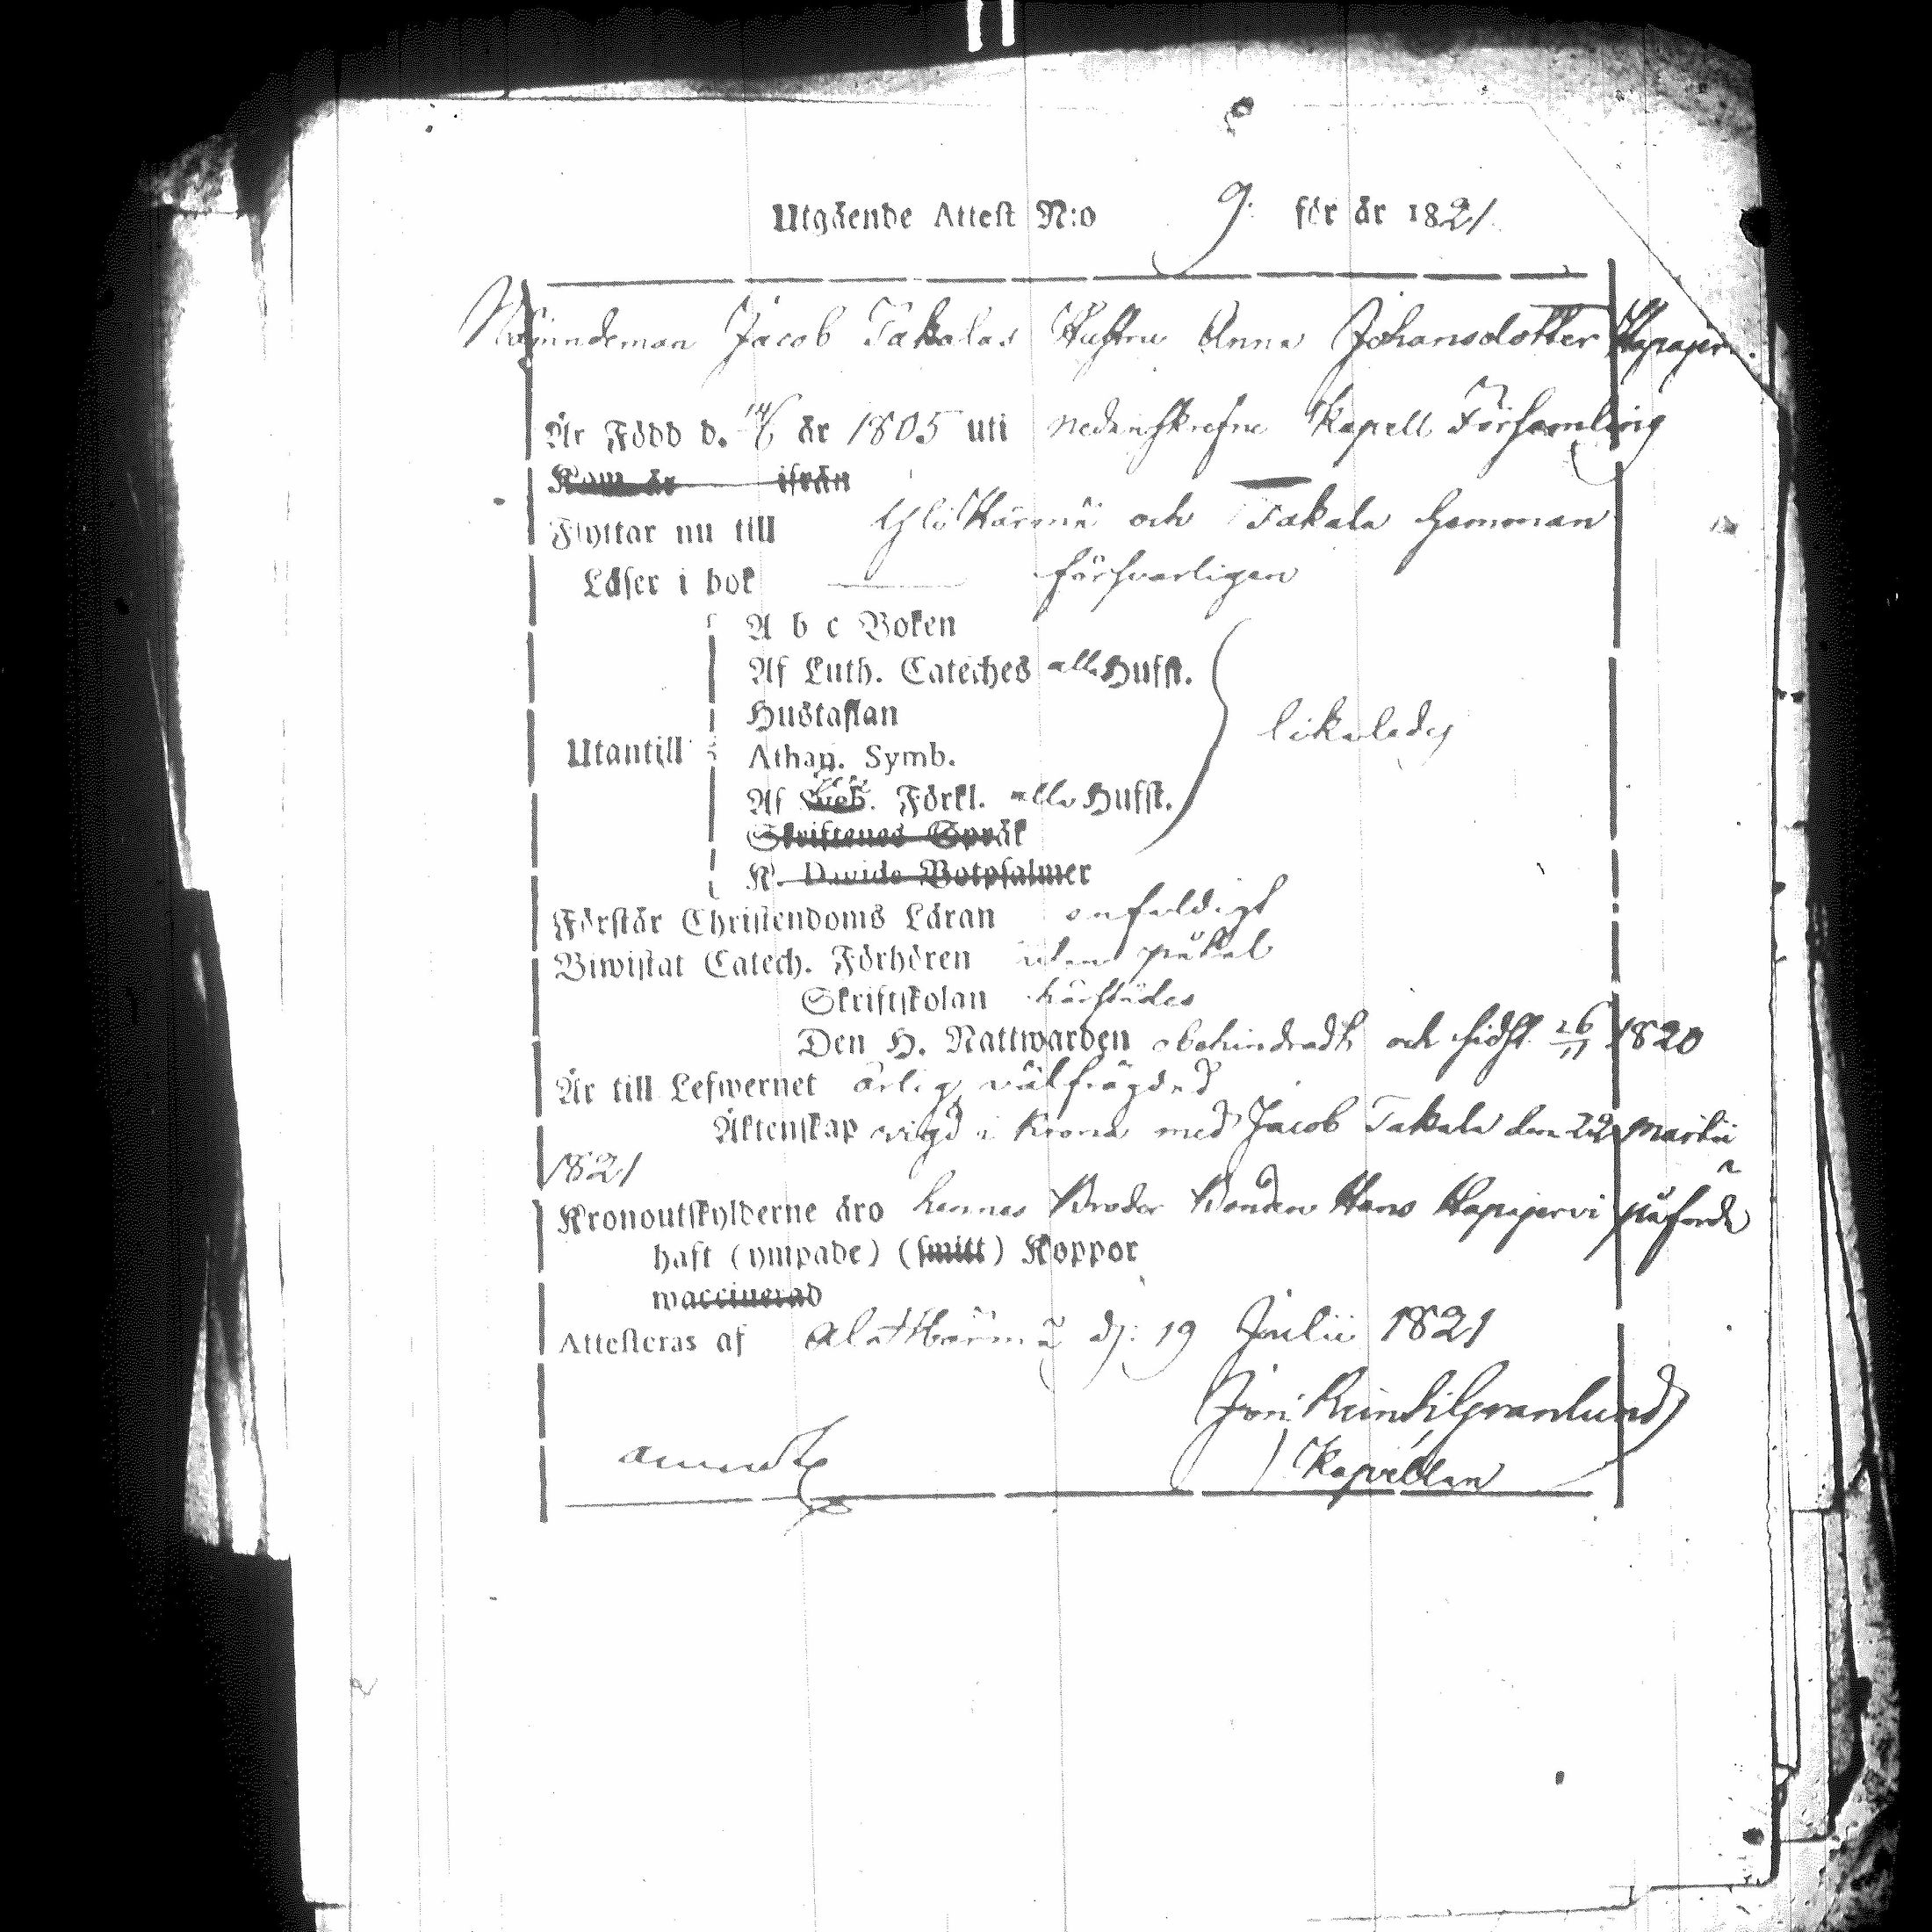 Utgående Attest N:o 9. för år 1821.
Jacob Takalas Hustru Anna Johansdotter Hapajervi
Är Född d. 14/6 år 1805 uti nedanskrefne Kapell Församling
Kom år ifrån
Flyttar nu till Ylihärmä och Takala hemman
Läser i bok försvarligen
A b c Boken
Af Luth. Cateches alla Hufst.
Hustaflan
Utantill
Athan. Symb.
Af Förkl. alla Hufst.
Skriftenes Språk
K. Davids Botpsalmer
likaledes
Förstår Christendoms Läran enfaldigt
Biwistat Catech. Förhören utan påkal
Skriftskolan härstädes
Den H. Nattwarden obehindradt och sidst 26/11 1820
Är till Lefwernet ärlig, välfrägdad
Äktenskap vigd i Krona med Jacob Takala den 22 martii
1821
Kronoutskylderne äro hennes Broder Bonden Hans Hapajervi påförde
haft (ympade) (smitt) Koppor
waccinerad
Attesteras af Alahärmä d. 19 Julii 1821
Granlund
Kapellan